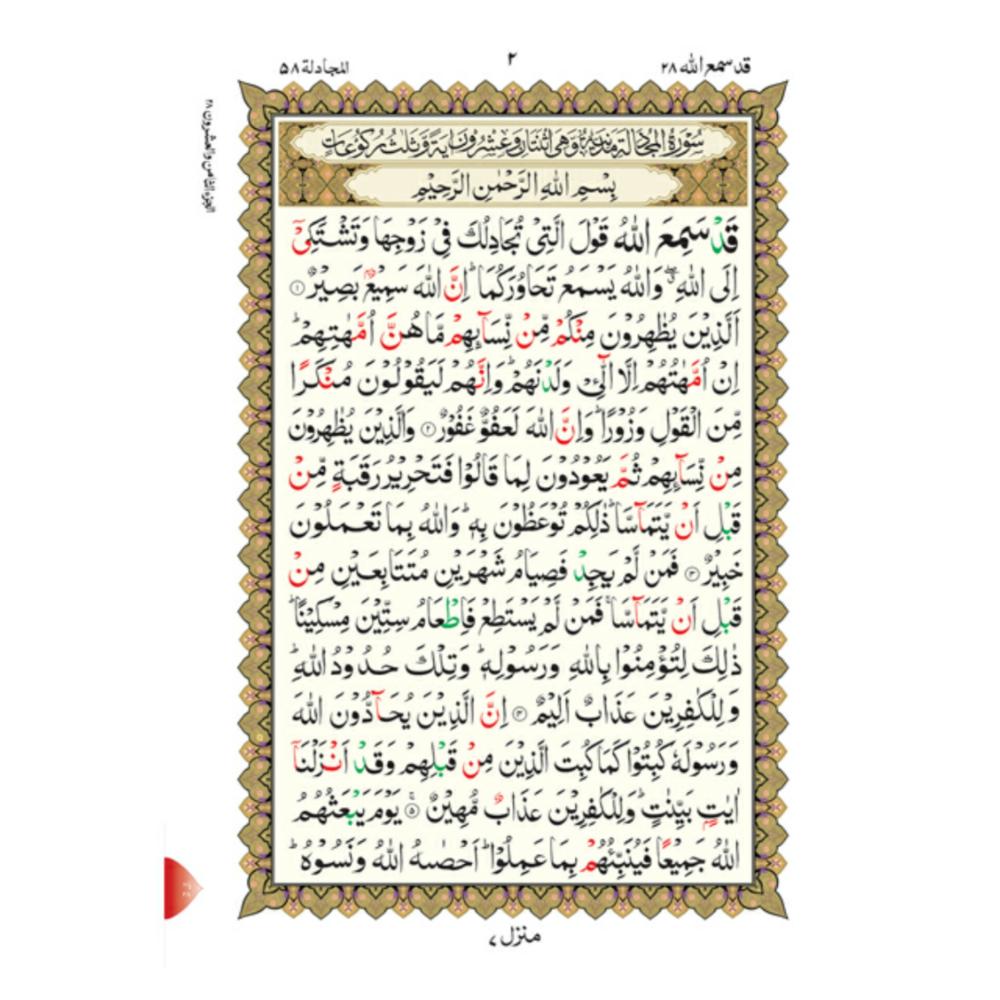 قد سمع الله ۲۸
۲
المجادلة ۵۸
الجزء الثامن والعشرون ۲۸
سُوْرَةُ الْمُجَادَلَةِ مَدَنِيَّةٌ وَّهِيَ اثْنَتَانِ وَعِشْرُوْنَ اٰيَةً وَّثَلٰثُ رُكُوْعَاتٍ
بِسْمِ اللهِ الرَّحْمٰنِ الرَّحِيْمِ
قَدْ سَمِعَ اللهُ قَوْلَ الَّتِيْ تُجَادِلُكَ فِيْ زَوْجِهَا وَتَشْتَكِيْٓ
اِلَى اللهِ ۖ وَاللهُ يَسْمَعُ تَحَاوُرَكُمَا ؕ اِنَّ اللهَ سَمِيْعٌۢ بَصِيْرٌ ۱
اَلَّذِيْنَ يُظٰهِرُوْنَ مِنْكُمْ مِّنْ نِّسَآئِهِمْ مَّا هُنَّ اُمَّهٰتِهِمْ ؕ
اِنْ اُمَّهٰتُهُمْ اِلَّا الّٰٓـِٔيْ وَلَدْنَهُمْ ؕ وَاِنَّهُمْ لَيَقُوْلُوْنَ مُنْكَرًا
مِّنَ الْقَوْلِ وَزُوْرًا ؕ وَاِنَّ اللهَ لَعَفُوٌّ غَفُوْرٌ ۲ وَالَّذِيْنَ يُظٰهِرُوْنَ
مِنْ نِّسَآئِهِمْ ثُمَّ يَعُوْدُوْنَ لِمَا قَالُوْا فَتَحْرِيْرُ رَقَبَةٍ مِّنْ
قَبْلِ اَنْ يَّتَمَآسَّا ؕ ذٰلِكُمْ تُوْعَظُوْنَ بِهٖ ؕ وَاللهُ بِمَا تَعْمَلُوْنَ
خَبِيْرٌ ۳ فَمَنْ لَّمْ يَجِدْ فَصِيَامُ شَهْرَيْنِ مُتَتَابِعَيْنِ مِنْ
قَبْلِ اَنْ يَّتَمَآسَّا ۚ فَمَنْ لَّمْ يَسْتَطِعْ فَاِطْعَامُ سِتِّيْنَ مِسْكِيْنًا ؕ
ذٰلِكَ لِتُؤْمِنُوْا بِاللهِ وَرَسُوْلِهٖ ؕ وَتِلْكَ حُدُوْدُ اللهِ ؕ
وَلِلْكٰفِرِيْنَ عَذَابٌ اَلِيْمٌ ۴ اِنَّ الَّذِيْنَ يُحَآدُّوْنَ اللهَ
وَرَسُوْلَهٗ كُبِتُوْا كَمَا كُبِتَ الَّذِيْنَ مِنْ قَبْلِهِمْ وَقَدْ اَنْزَلْنَآ
اٰيٰتٍۭ بَيِّنٰتٍ ؕ وَلِلْكٰفِرِيْنَ عَذَابٌ مُّهِيْنٌ ۵ۚ يَوْمَ يَبْعَثُهُمُ
اللهُ جَمِيْعًا فَيُنَبِّئُهُمْ بِمَا عَمِلُوْا ؕ اَحْصٰىهُ اللهُ وَنَسُوْهُ ؕ
منزل ۷